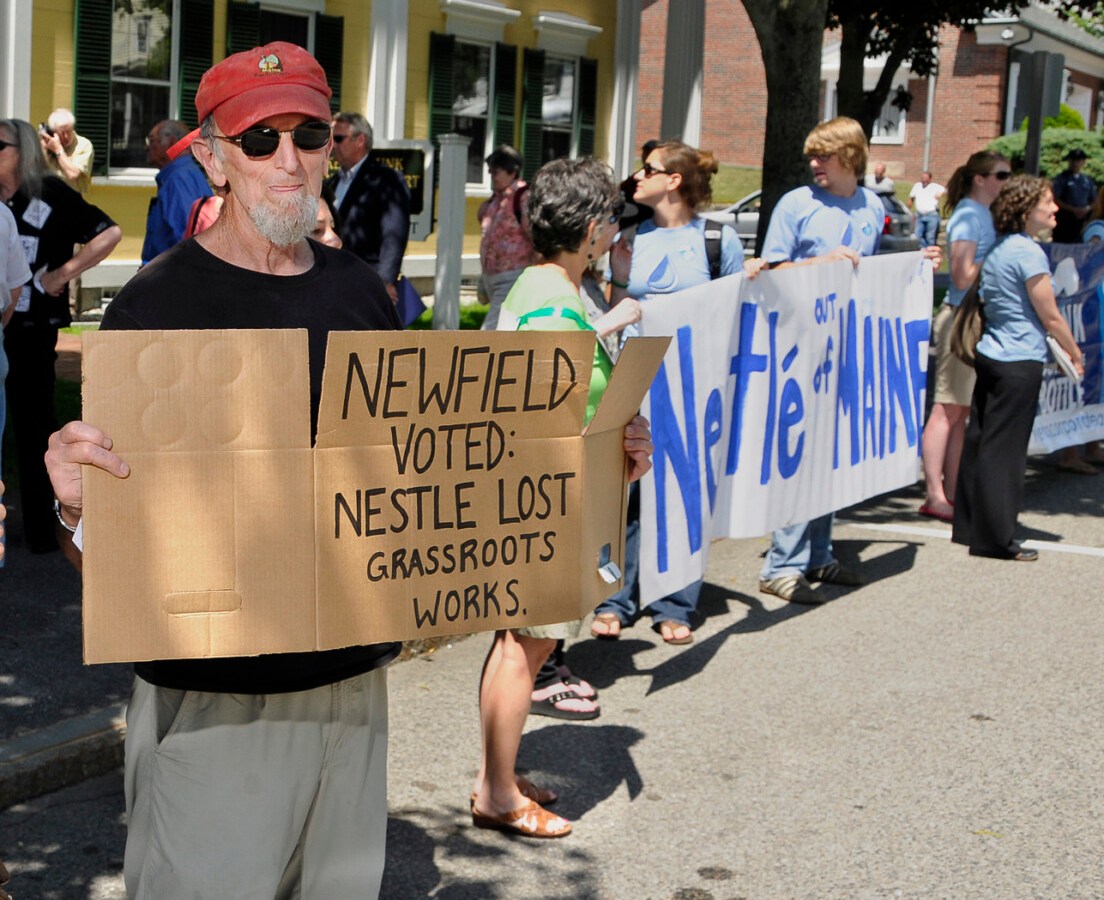 NEWFIELD
VOTED:
NESTLE LOST
GRASSROOTS
WORKS.
Nestlé OUT of MAINE